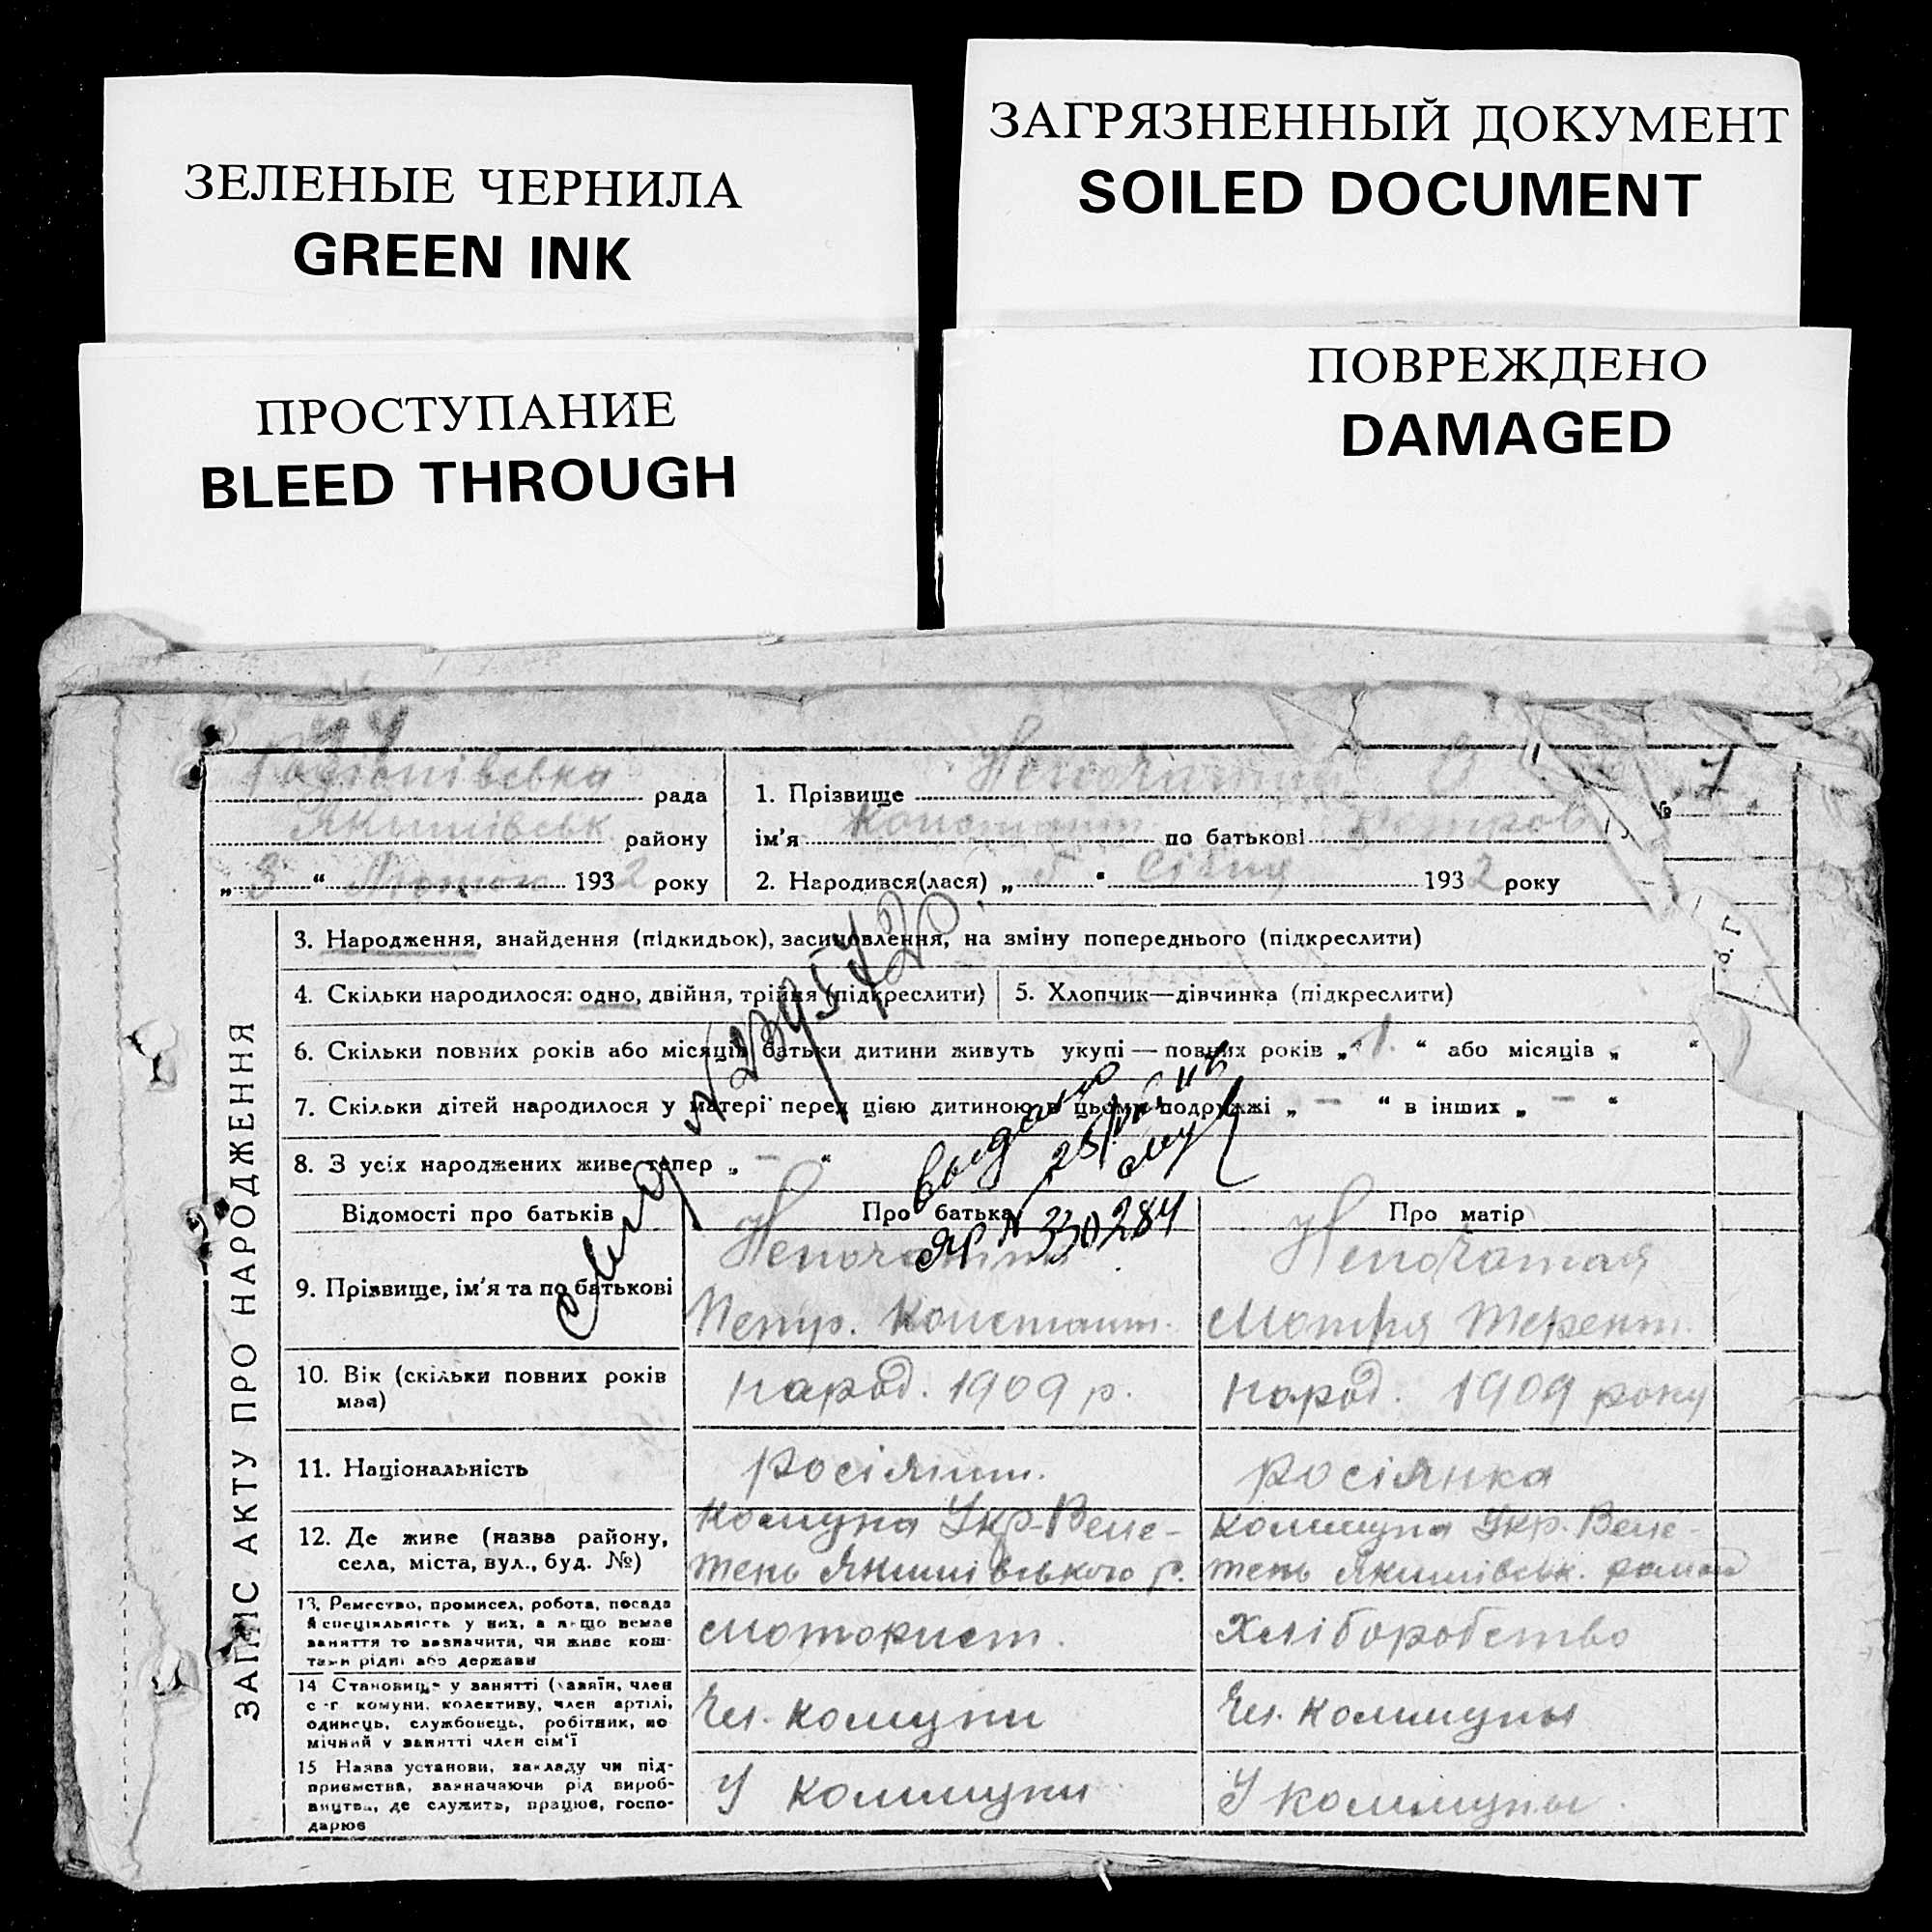 ЗЕЛЕНЫЕ ЧЕРНИЛА
GREEN INK
ЗАГРЯЗНЕННЫЙ ДОКУМЕНТ
SOILED DOCUMENT
ПРОСТУПАНИЕ
BLEED THROUGH
ПОВРЕЖДЕНО
DAMAGED
рада
Якимівськ. району
„3“ Лютого 1932 року
1. Прізвище
№ 1.
ім'я Констант. по батькові Петров
2. Народився(лася) „5“ Січня 1932 року
ЗАПИС АКТУ ПРО НАРОДЖЕННЯ
3. Народження, знайдення (підкидьок), засиновлення, на зміну попереднього (підкреслити)
4. Скільки народилося: одно, двійня, трійня (підкреслити)
5. Хлопчик—дівчинка (підкреслити)
6. Скільки повних років або місяців батьки дитини живуть укупі — повних років „1.“ або місяців „ “
7. Скільки дітей народилося у матері перед цією дитиною в цьому подружжі „—“ в інших „—“
8. З усіх народжених живе тепер „—“
видано
ЯР № 330284
Відомості про батьків
Про батька
Про матір
9. Прізвище, ім'я та по батькові
Петр. Констант.
Непочатая
Мотря Терент.
10. Вік (скільки повних років має)
народ. 1909 р.
народ. 1909 року
11. Національність
росіянин.
росіянка
12. Де живе (назва району, села, міста, вул., буд. №)
Комуна Укр-Веле-
тень Якимівського р.
Коммуна Укр. Веле-
тень Якимівськ. район
13. Ремество, промисел, робота, посада й спеціяльність у них, а якщо немає заняття то зазначити, чи живе коштами рідні або держави
моторист.
Хліборобство
14 Становище у занятті (хазяїн, член с.-г. комуни, колективу, член артілі, одинець, службовець, робітник, помічний у занятті член сім'ї
Чл. комуни
Чл. коммуны
15 Назва установи, закладу чи підприємства, зазначаючи рід виробництва, де служить, працює, господарює
У коммуни
У коммуны.